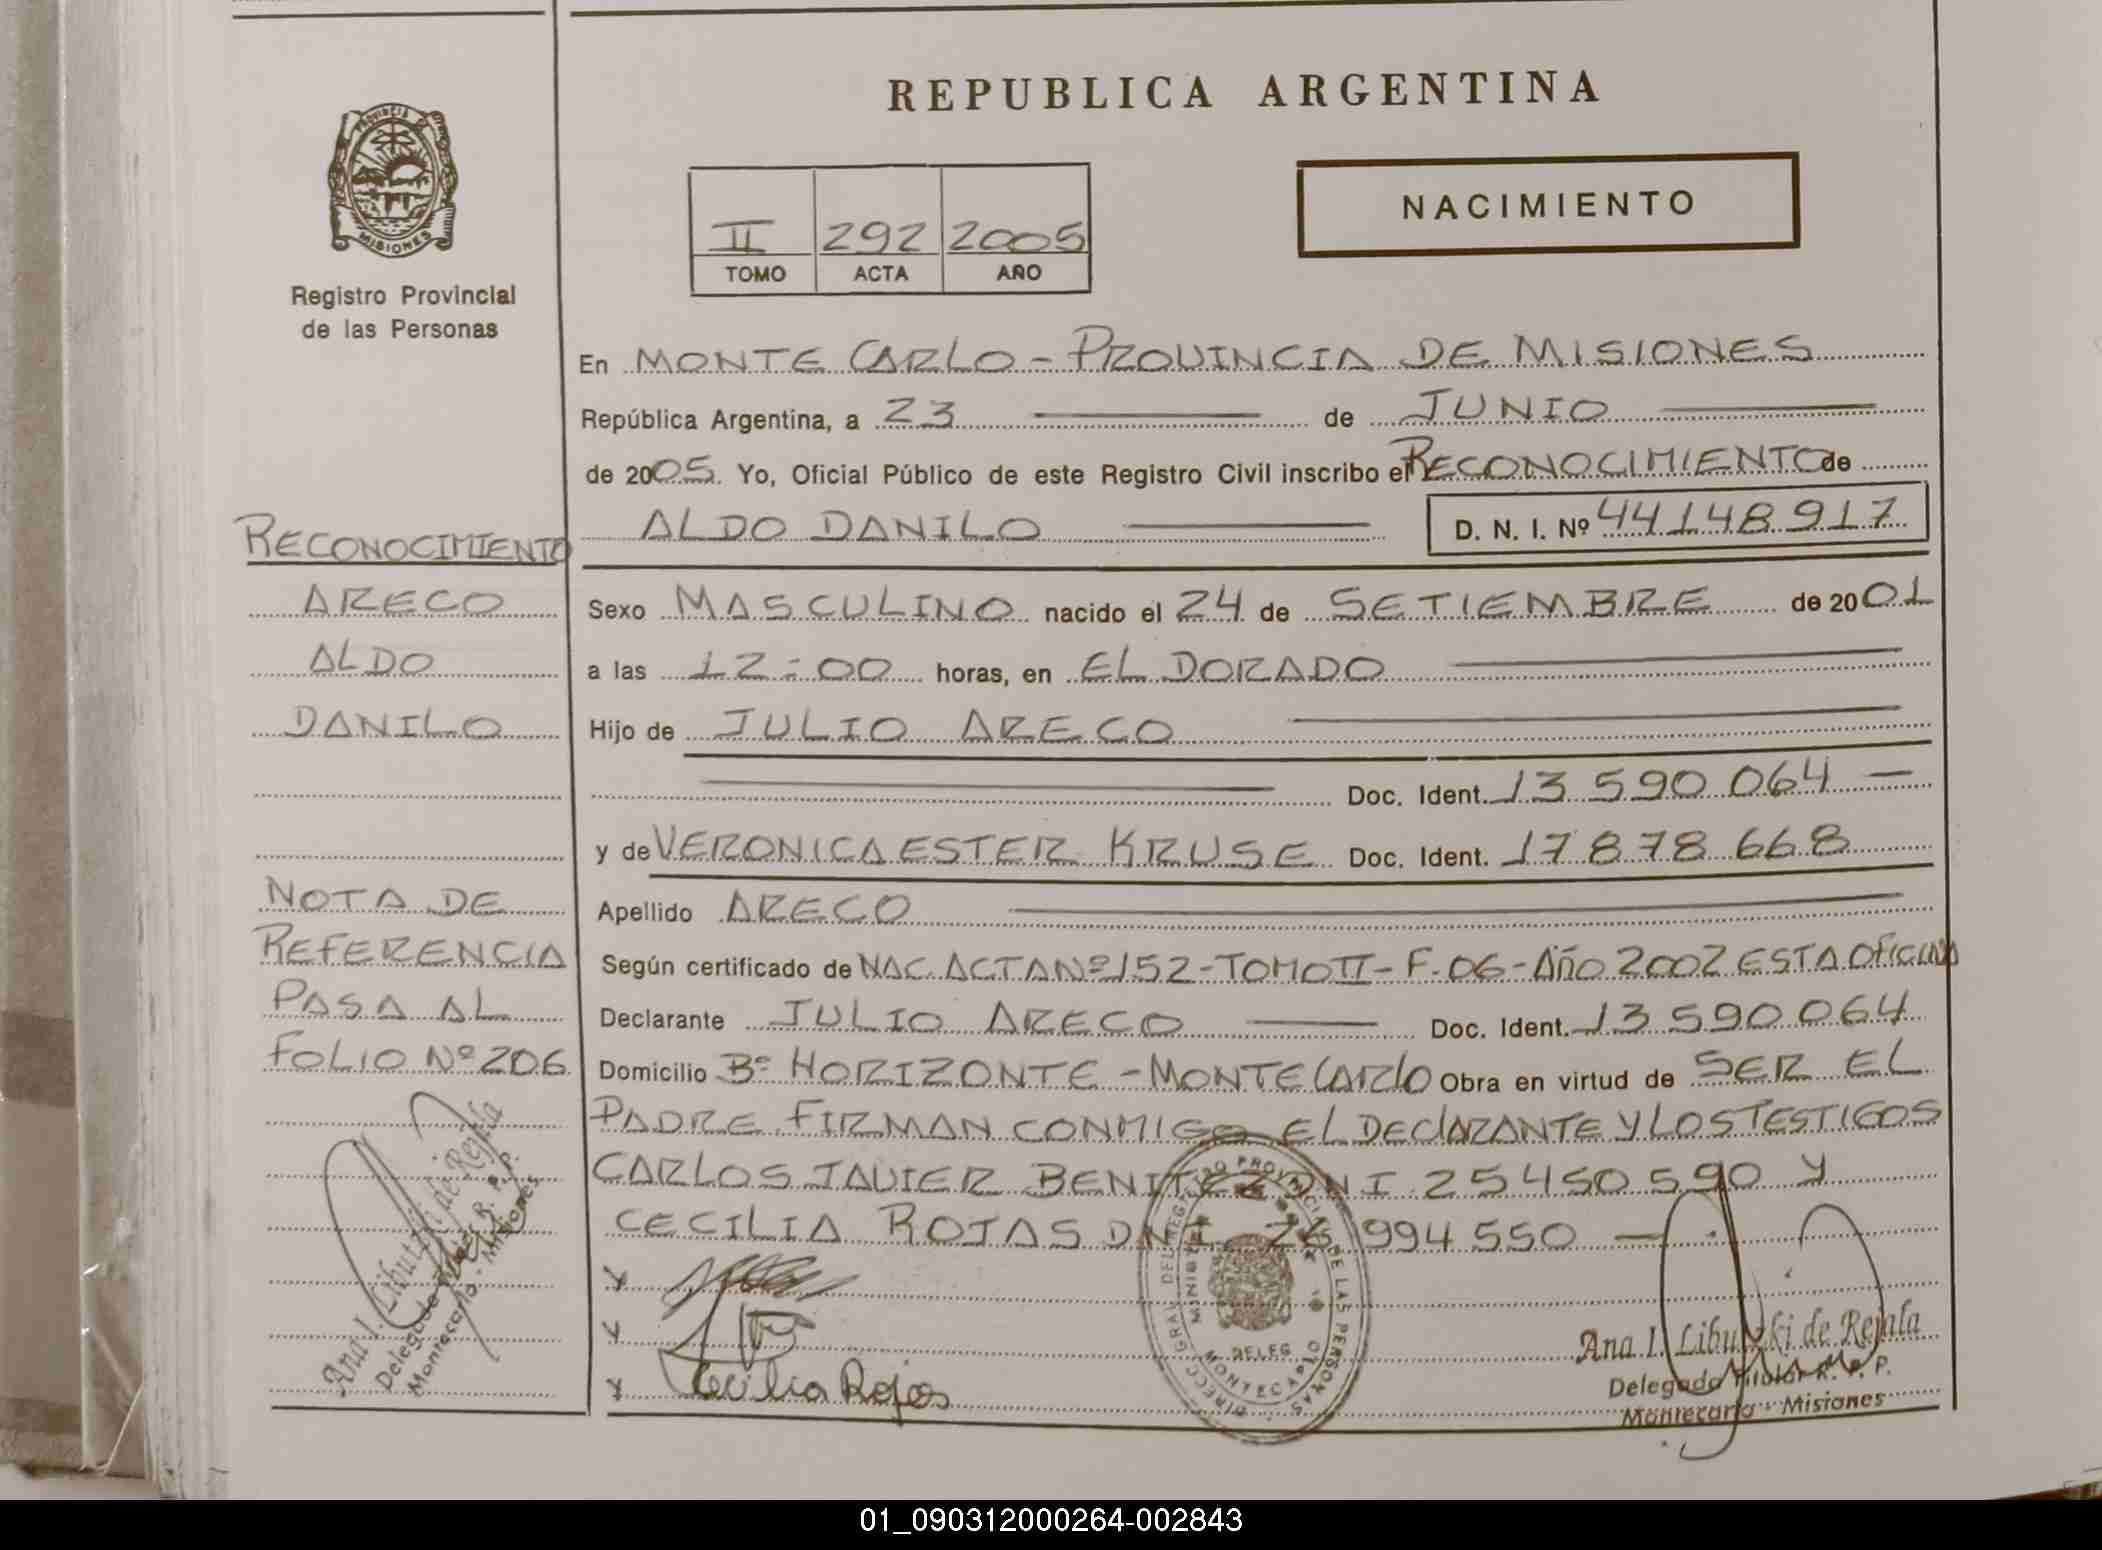 REPUBLICA ARGENTINA
PROVINCIA DE
MISIONES
Registro Provincial
de las Personas
NACIMIENTO
II 292 2005
TOMO ACTA AÑO
En MONTE CARLO - PROVINCIA DE MISIONES
República Argentina, a 23 de JUNIO
de 2005. Yo, Oficial Público de este Registro Civil inscribo el RECONOCIMIENTO de
ALDO DANILO D. N. I. Nº 44148917
Sexo MASCULINO nacido el 24 de SETIEMBRE de 2001
a las 12:00 horas, en EL DORADO
Hijo de JULIO ARECO
Doc. Ident. 13 590 064
y de VERONICA ESTER KRUSE Doc. Ident. 17 878 668
Apellido ARECO
Según certificado de NAC. ACTA Nº 152 - TOMO II - F. 06 - Año 2002 ESTA OFICINA
Declarante JULIO ARECO Doc. Ident. 13 590 064
Domicilio Bº HORIZONTE - MONTECARLO Obra en virtud de SER EL
PADRE FIRMAN CONMIGO EL DECLARANTE Y LOS TESTIGOS
CARLOS JAVIER BENITEZ DNI 25 450 590 Y
CECILIA ROJAS DNI 26 994 550
Cecilia Rojas
DELEG
MONTECARLO
Ana I. Libutzki de Rejala
Delegada Titular R. P. P.
Montecarlo - Misiones
RECONOCIMIENTO
ARECO
ALDO
DANILO
NOTA DE
REFERENCIA
PASA AL
FOLIO Nº 206
Ana I. Libutzki de Rejala
Delegada Titular R. P. P.
Montecarlo - Misiones
01_090312000264-002843